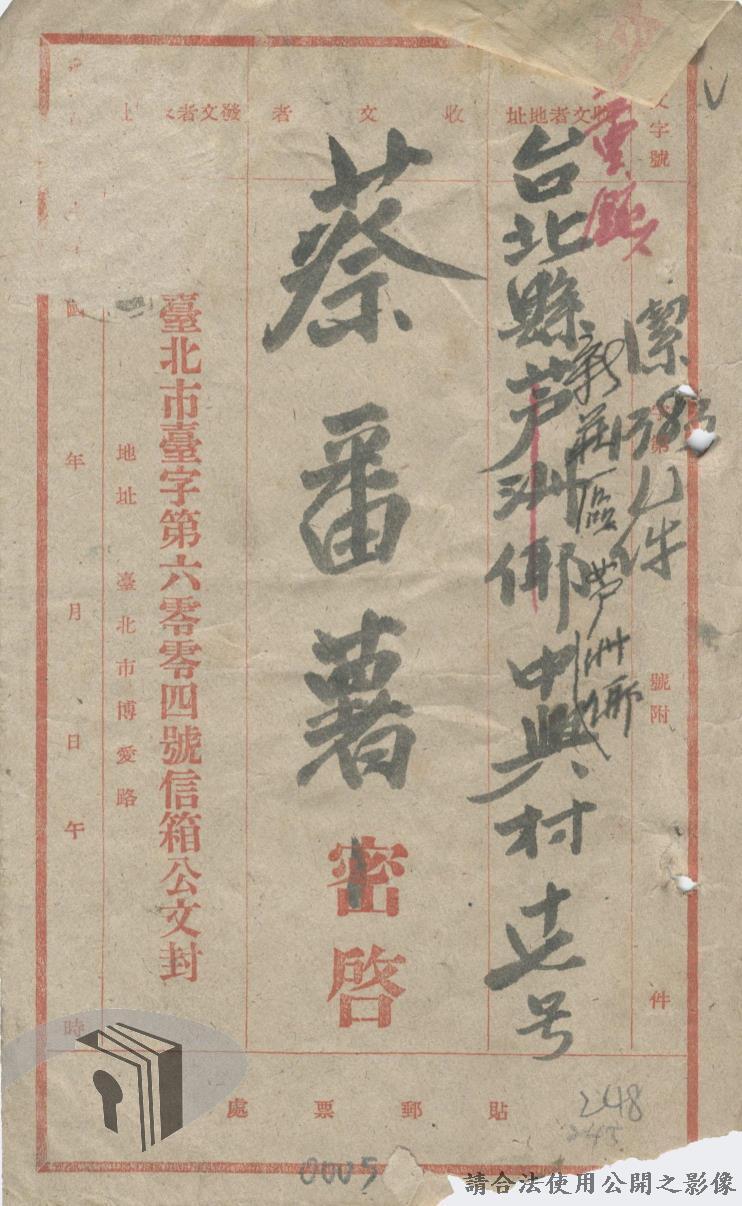 文字號
字第
號附
件
潔
收文者地址
台北縣芦洲鄉中興村十七号
新莊區芦洲鄉
重鎮
收文者
蔡番薯
密啓
發文者
臺北市臺字第六零零四號信箱公文封
地址 臺北市博愛路
年 月 日 午 時
貼郵票處
248
245
0005
請合法使用公開之影像